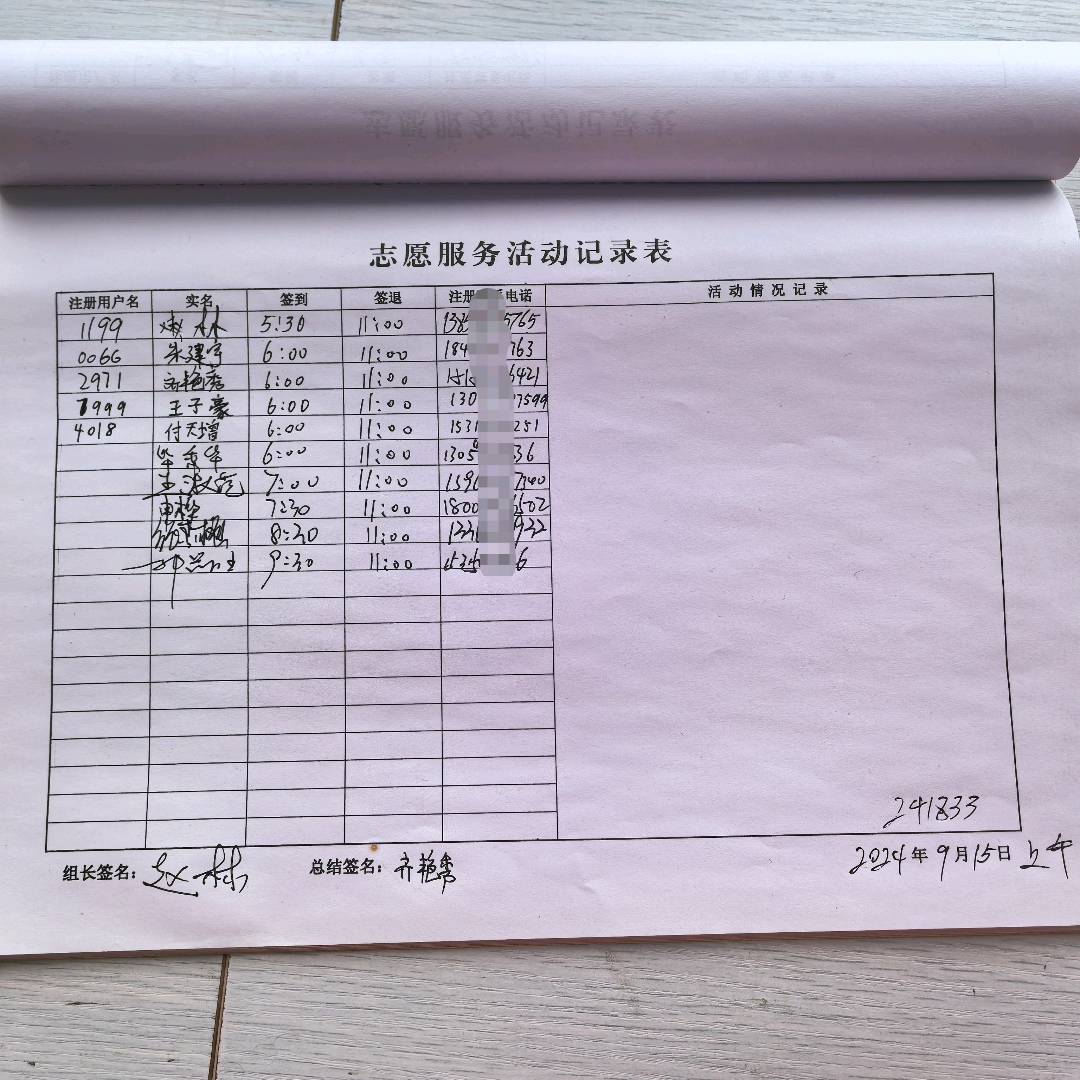 志愿服务活动记录表
注册用户名 实名 签到 签退 注册 电话 活动情况记录
1199 林 5:30 11:00 138 5765
0066 朱建宇 6:00 11:00 184 763
2971 齐艳秀 6:00 11:00 151 6421
7999 王子豪 6:00 11:00 130 7599
4018 付天增 6:00 11:00 1531 251
6:00 11:00 1305 36
王淑苑 7:00 11:00 1390 7340
申桦 7:30 11:00 1800 6502
8:30 11:00 1330 932
9:30 11:00 6
241833
组长签名: 赵林 总结签名: 齐艳秀 2024年9月15日上午